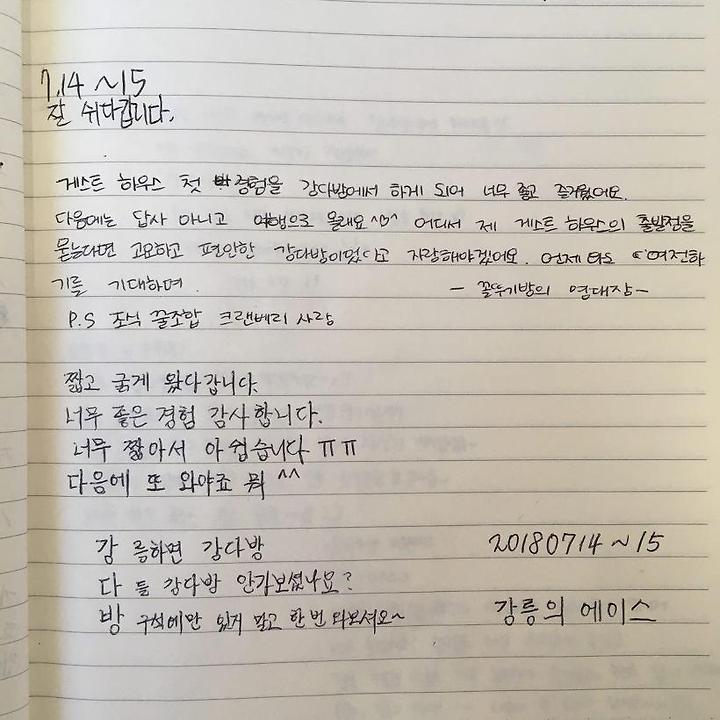 7.14 ~15
잘 쉬다갑니다.
게스트 하우스 첫 경험을 감다방에서 하게 되어 너무 좋고 즐거웠어요.
다음에는 답사 아니고 여행으로 올래요^0^ 어디서 제 게스트 하우스의 출발점을
묻는다면 고요하고 편안한 감다방이었다고 자랑해야겠어요. 언제 와도 여전하
기를 기대하며. - 꼴뚜기방의 열대장-
P.S 조식 꿀조합 크랜베리 사랑
짧고 굵게 왔다갑니다.
너무 좋은 경험 감사합니다.
너무 짧아서 아쉽습니다 ㅠㅠ
다음에 또 와야죠 뭐 ^^
감 릉하면 감다방 20180714~15
다 들 감다방 안가보셨나요?
방 구석에만 있지 말고 한번 와보셔요~ 강릉의 에이스